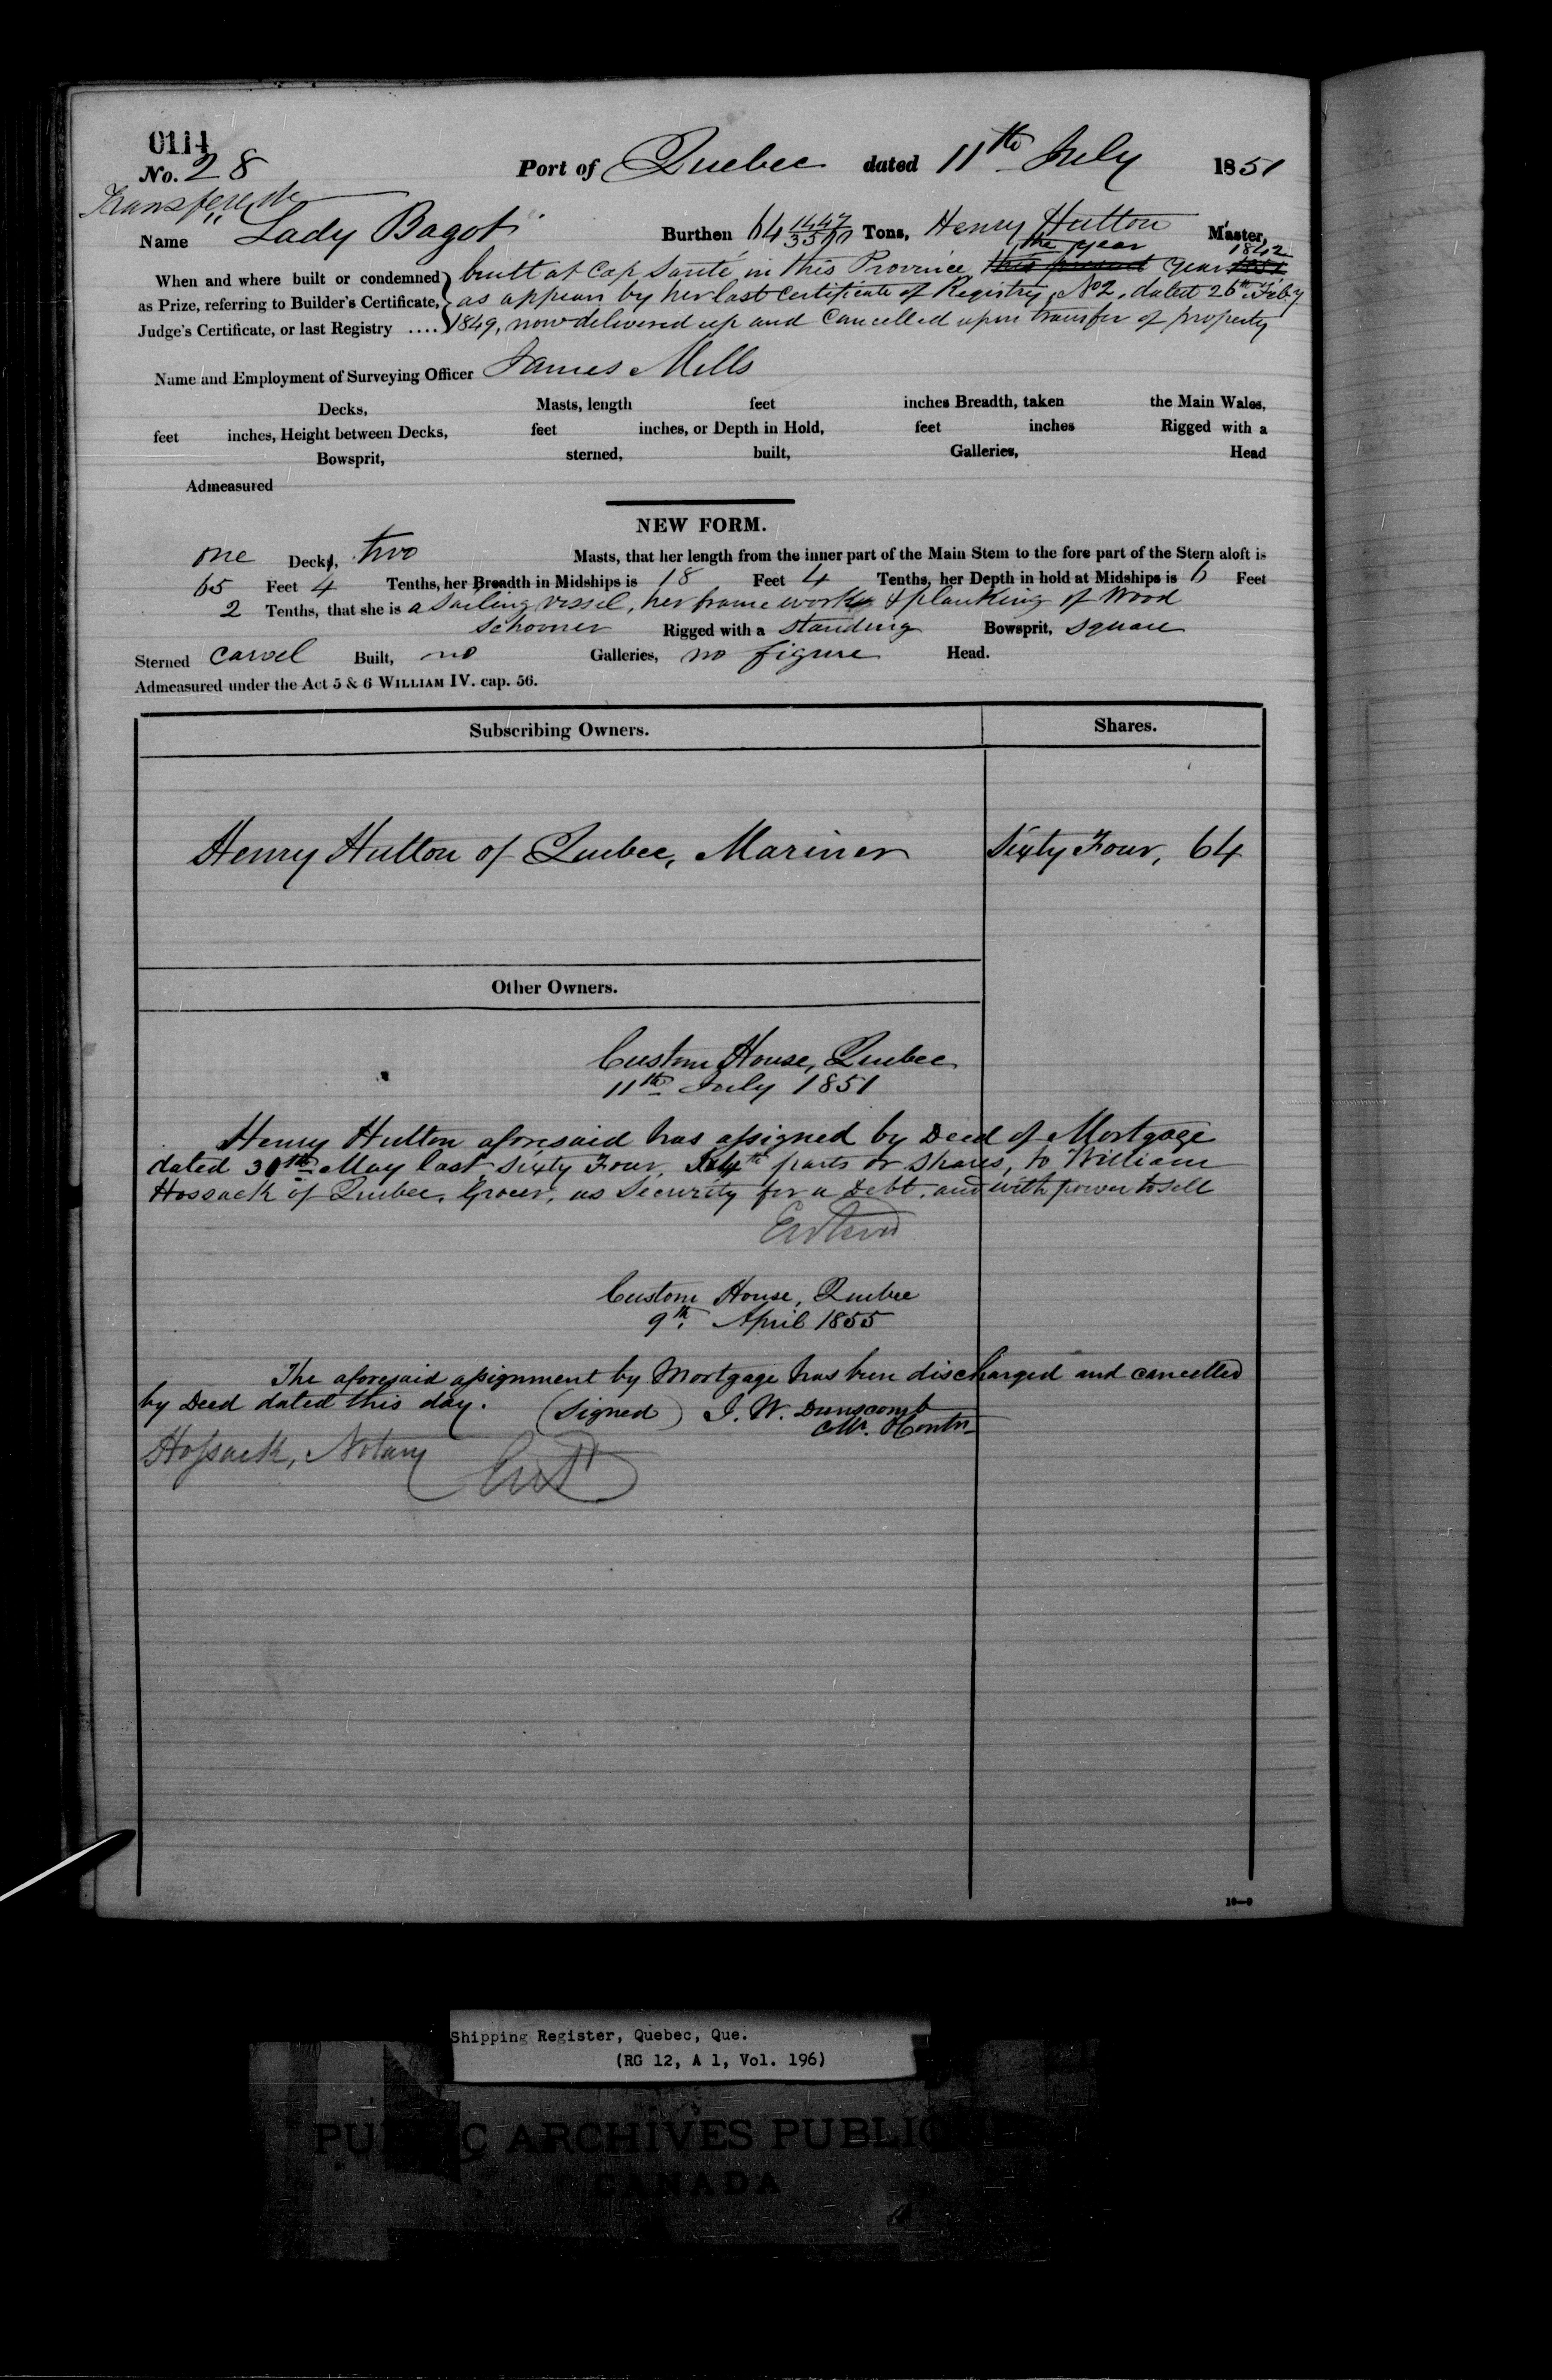 0114
No. 28 Port of Quebec dated 11th July 1851
Name "Lady Bagot" Burthen 64 1447/3500 Tons, Henry Hutton Master,
the year 1842
When and where built or condemned built at Cap Santé in this Province this present year 1851
as Prize, referring to Builder's Certificate, as appears by her last Certificate of Registry, No 2, dated 26th Feby
Judge's Certificate, or last Registry .... 1849, now delivered up and Cancelled upon transfer of property
Name and Employment of Surveying Officer James Mills
Decks, Masts, length feet inches Breadth, taken the Main Wales,
feet inches, Height between Decks, feet inches, or Depth in Hold, feet inches Rigged with a
Bowsprit, sterned, built, Galleries, Head
Admeasured
NEW FORM.
one Decks, two Masts, that her length from the inner part of the Main Stem to the fore part of the Stern aloft is
65 Feet 4 Tenths, her Breadth in Midships is 18 Feet 4 Tenths, her Depth in hold at Midships is 6 Feet
2 Tenths, that she is a Sailing vessel, her frame work & planking of Wood
Schooner Rigged with a standing Bowsprit, square
Sterned Carvel Built, no Galleries, no figure Head.
Admeasured under the Act 5 & 6 WILLIAM IV. cap. 56.
Subscribing Owners. Shares.
Henry Hutton of Quebec, Mariner Sixty Four, 64
Other Owners.
Custom House, Quebec
11th July 1851
Henry Hutton aforesaid has assigned by Deed of Mortgage
dated 30th May last Sixty Four, 64th parts or Shares, to William
Hossack of Quebec, Grocer, as Security for a Debt, and with power to sell
Custom House, Quebec
9th April 1855
The aforesaid assignment by Mortgage has been discharged and cancelled
by Deed dated this day. (Signed) J. W. Dunscomb
Hossack, Notary
10—9
Shipping Register, Quebec, Que.
(RG 12, A 1, Vol. 196)
ARCHIVES PUBLI
CANADA